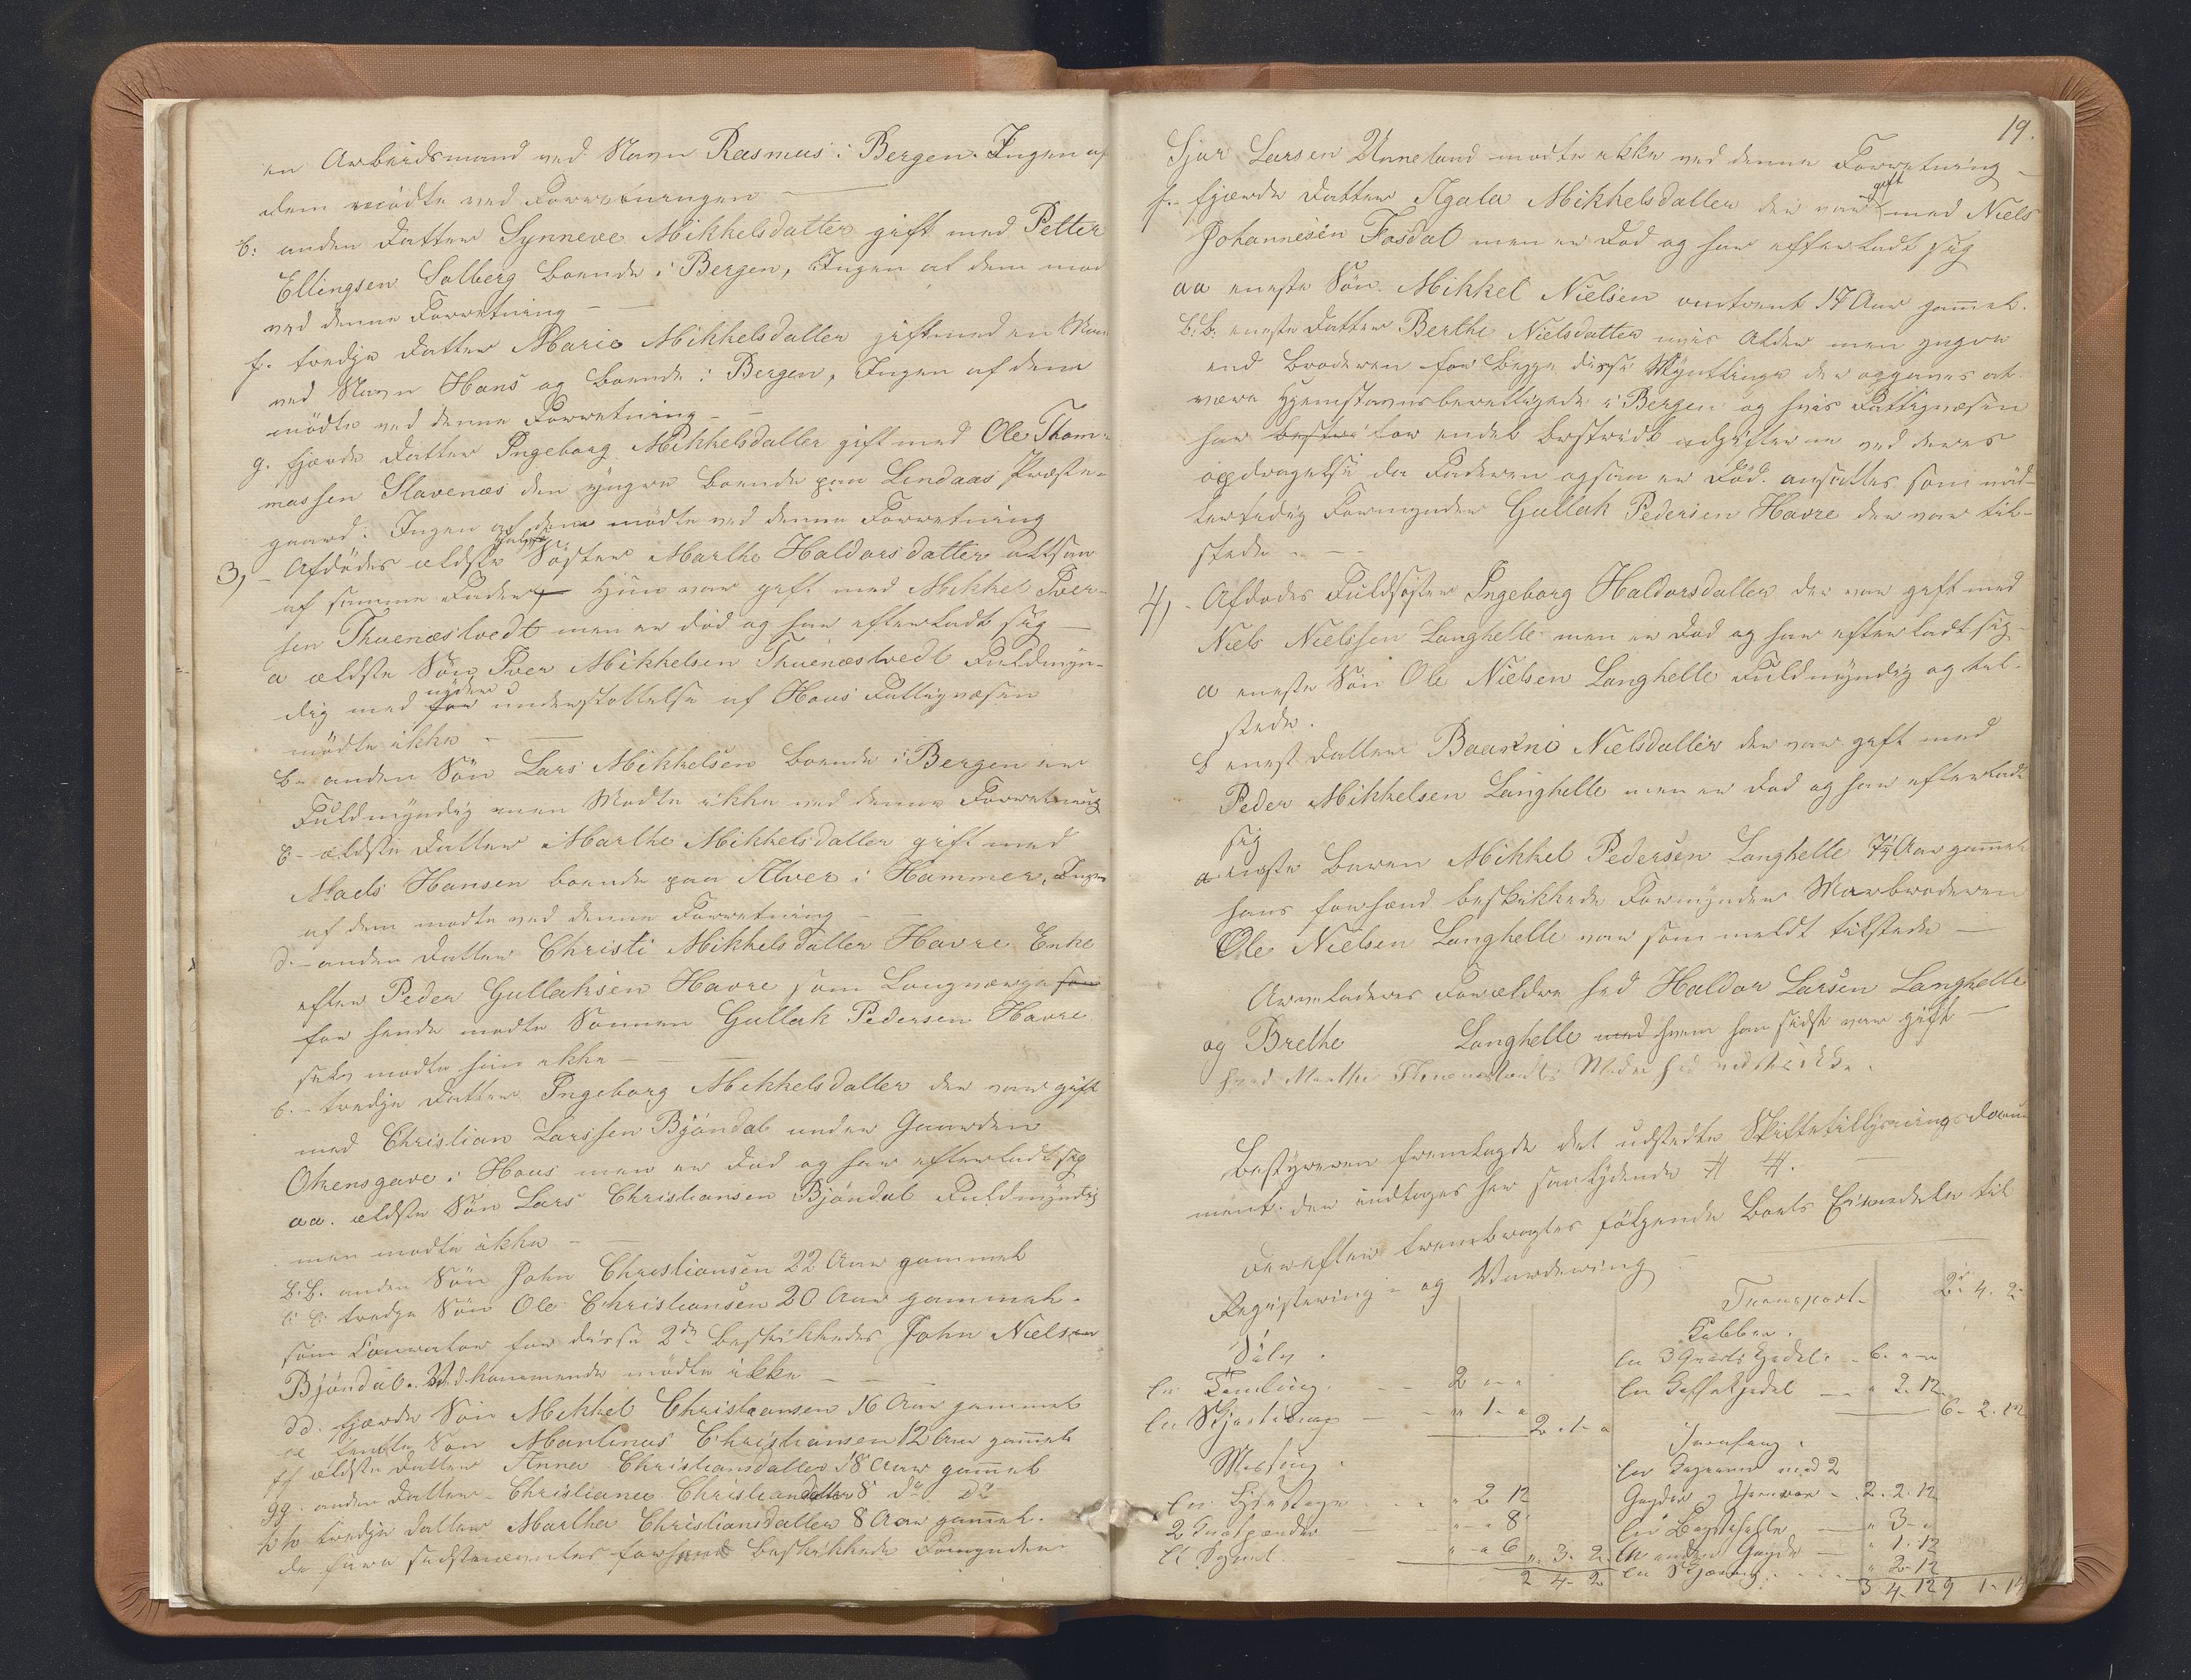 en Arbeidsmand ved Navn Rasmus i Bergen. Ingen af
dem mödte ved Forretningen
b: anden Datter Synneve Mikkelsdatter gift med Petter
Ellingsen Solberg boende i Bergen, Ingen af dem mød
ved denne Forretning
f. tredje Datter Marie Mikkelsdatter gift med en Man
ved Navn Hans og boende i Bergen, Ingen af dem
mödte ved denne Forretning
g. fjerde Datter Ingeborg Mikkelsdatter gift med Ole Thom-
massen Slavenæs den yngre boende paa Lindaas Præste-
gaard. Ingen af dem mödte ved denne Forretning
3, - Afdödes ældste Söster Marthe Haldorsdatter altsaa
af samme Fader. Hun var gift med Mikkel Iver-
sen Thuenæstvedt men er död og har efterladt sig
a ældste Sön Iver Mikkelsen Thuenæstvedt Fuldmyn-
dig med nyder understøttelse af Hous Fattigvæsen
mödte ikke
b- anden Sön Lars Mikkelsen boende i Bergen er
Fuldmyndig men Mødte ikke ved denne Forretning
c- ældste Datter Marthe Mikkelsdatter gift med
Mads Hansen boende paa Alver i Hammer, Ingen
af dem mødte ved denne Forretning
d.- anden Datter Christi Mikkelsdatter Havre Enke
efter Peder Gullaksen Havre som Laugværge for
for hende mødte Sønnen Gullak Pedersen Havre
selv mødte hun ikke
e.- tredje Datter Ingeborg Mikkelsdatter der var gift
med Christian Larssen Bjöndal under Gaarden
Okensgave i Hous men er död og har efterladt sig
aa. ældste Sön Lars Christiansen Bjöndal Fuldmyndig
men mødte ikke
b.b. anden Sön John Christiansen 22 Aar gammel
c c tredje Sön Ole Christiansen 20 Aar gammel.
som Kurator for disse 2de beskikkedes John Nielsen
Bjöndal. Vedkommende mødte ikke
dd. fjerde Sön Mikkel Christiansen 16 Aar gammel
ee femte Sön Martinus Christiansen 12 Aar gamel
ff ældste Datter Anna Christiansdatter 18 Aar gamel
gg. anden Datter Christiane Christiansdatter 8 do do
hh tredje Datter Marthe Christiansdatter 8 Aar gamel.
de sidstnævntes forhend beskikkede Formynder
19.
Sjur Larsen Unneland mødte ikke ved denne Forretning
f.- fjerde Datter Agata Mikkelsdatter der var gift med Niels
Johannesen Fosdal men er Død og har efterladt sig
aa eneste Sön Mikkel Nielsen omtrent 14 Aar gamel.
b.b. eneste Datter Berthe Nielsdatter uvis Alder men yngre
end Broderen for begge disse Myntlinge der opgaves at
være Hjemstavnsberettigede i Bergen og hvis Fattigvæsen
har for endel bestridt udgifterne ved deres
opdragelse da Faderen ogsaa er Død. ansattes som mid-
lertidig Formynder Gullak Pedersen Havre der var til-
stede
4, - Afdødes Fuldsøster Ingeborg Haldorsdatter der var gift med
Niels Nielssen Langhelle men er Død og har efterladt sig
a eneste Sön Ole Nielsen Langhelle Fuldmyndig og til-
stede.
b enest Datter Baarni Nielsdatter der var gift med
Peder Mikkelsen Langhelle men er Død og har efterladt
sig
a eneste Barn Mikkel Pedersen Langhelle Aar gamel
hans forhænd beskikkede Formynder Morbroderen
Ole Nielsen Langhelle var som meldt tilstede
Arveladeres Forældre hed Haldor Larsen Langhelle
og Brethe Langhelle med hvem han sidst var gift
hvad Marthe Moder hed vidstes ikke.
Bestyreren fremlagde det udstedte Skiftetillysningsdocu-
ment. der indtages her saalydende # #.
Derefter frembragtes følgende Boets Eiendele til
Registering- og Vurdering
Sölv.
En 2 - -
En " 1 -
2 - 1 -
Messing.
En Lysestage " 2 12
2 " - 8
Et " - 6
" 3. 2.
2 4. 2
Transport 2. 4. 2
Kobber.
En 3 Kjedel 6. - -
En Kaffekjedel " 2. 12
6 - 2. 12
Jernfang.
En med 2
Gryder 2. 2. 12
En " 3 -
En anden Gryde " 1. 12
En " 2. 12
3 4. 12 9 1. 12